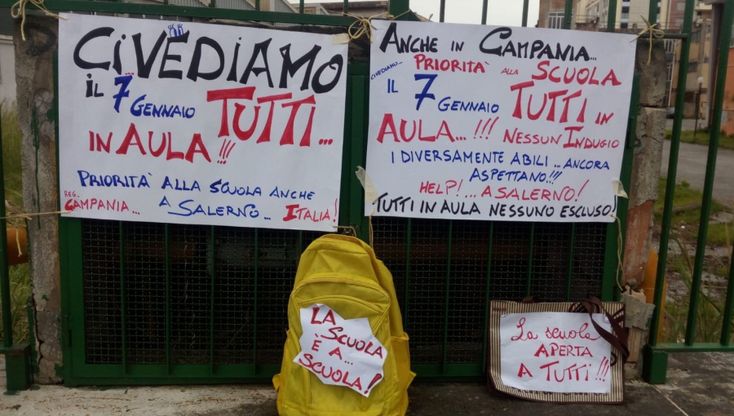 CIVEDIAMO
il 7 GENNAIO TUTTI...
IN AULA!!!
PRIORITA' ALLA SCUOLA ANCHE
REG. CAMPANIA... A SALERNO... ITALIA!
ANCHE IN CAMPANIA...
CHIEDIAMO... PRIORITA' ALLA SCUOLA
IL 7 GENNAIO TUTTI IN
AULA...!!! NESSUN INDUGIO
I DIVERSAMENTE ABILI... ANCORA
ASPETTANO!!!
HELP!... A SALERNO!
TUTTI IN AULA NESSUNO ESCLUSO!
LA
SCUOLA
È A...
SCUOLA!
La scuola
APERTA
A TUTTI!!!